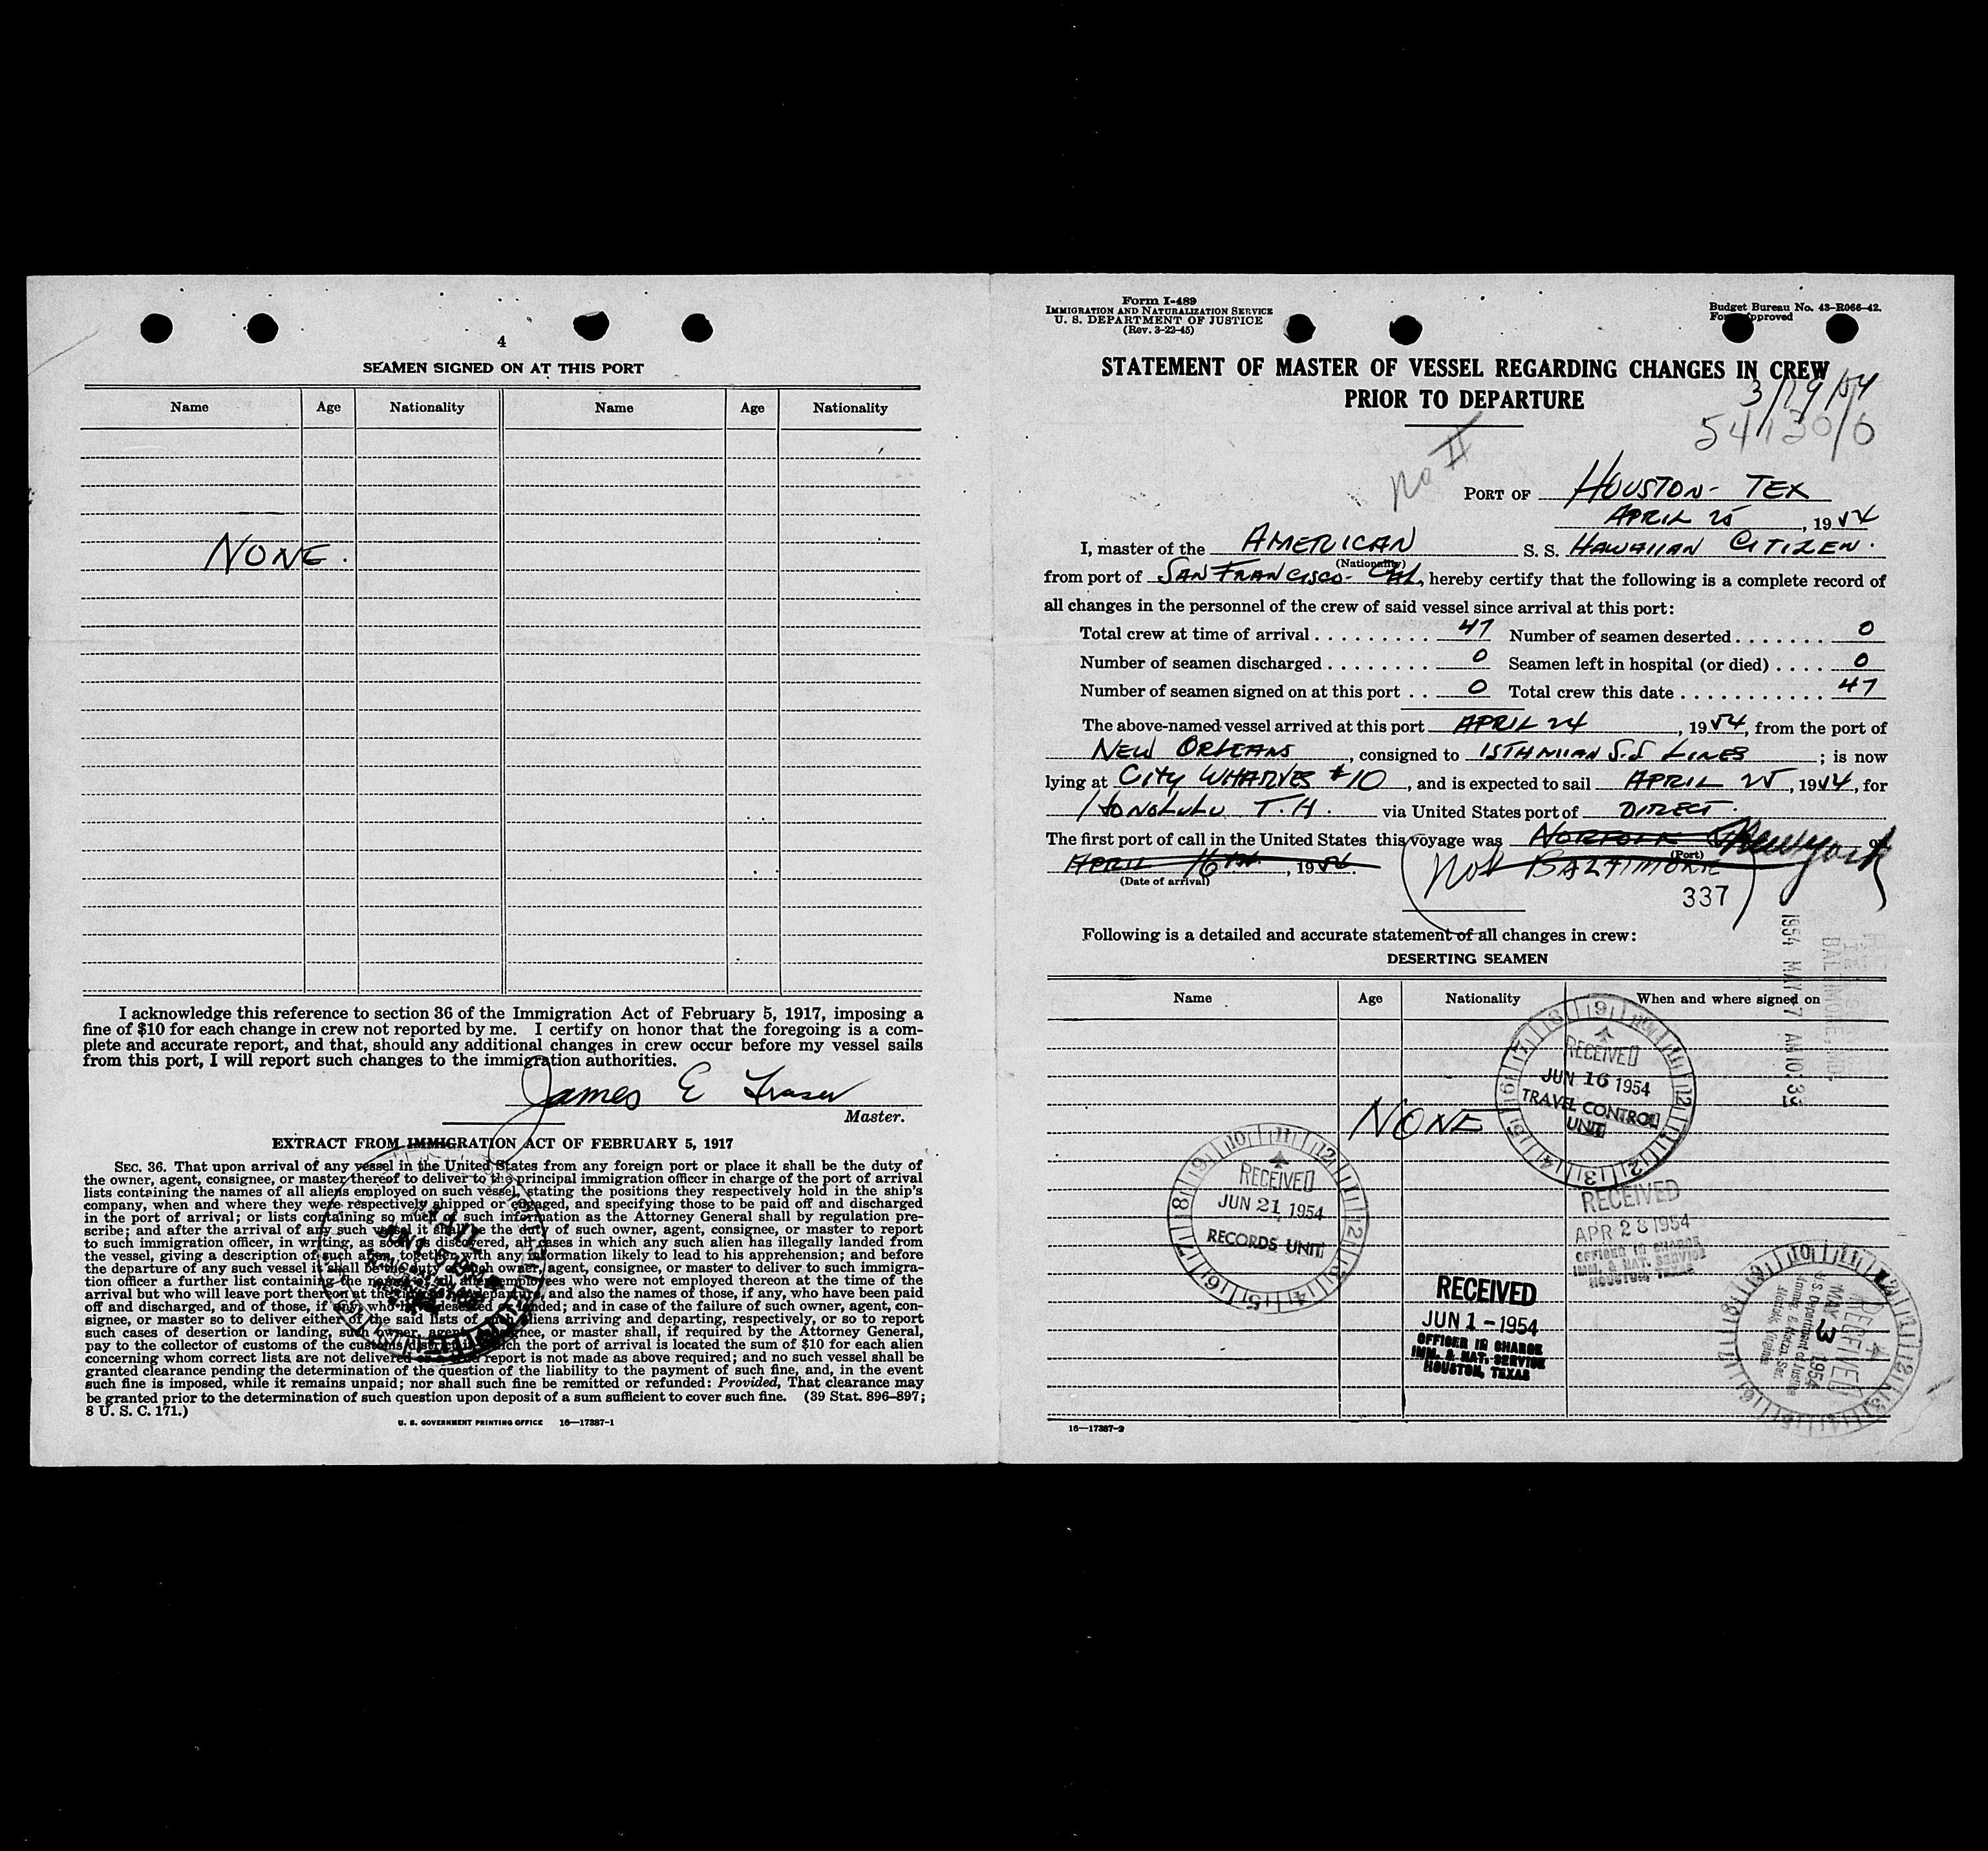 4
SEAMEN SIGNED ON AT THIS PORT
Name Age Nationality Name Age Nationality
NONE.
I acknowledge this reference to section 36 of the Immigration Act of February 5, 1917, imposing a
fine of $10 for each change in crew not reported by me. I certify on honor that the foregoing is a com-
plete and accurate report, and that, should any additional changes in crew occur before my vessel sails
from this port, I will report such changes to the immigration authorities.
James E Fraser
Master.
EXTRACT FROM IMMIGRATION ACT OF FEBRUARY 5, 1917
SEC. 36. That upon arrival of any vessel in the United States from any foreign port or place it shall be the duty of
the owner, agent, consignee, or master thereof to deliver to the principal immigration officer in charge of the port of arrival
lists containing the names of all aliens employed on such vessel, stating the positions they respectively hold in the ship's
company, when and where they were respectively shipped or engaged, and specifying those to be paid off and discharged
in the port of arrival; or lists containing so much of such information as the Attorney General shall by regulation pre-
scribe; and after the arrival of any such vessel it shall be the duty of such owner, agent, consignee, or master to report
to such immigration officer, in writing, as soon as discovered, all cases in which any such alien has illegally landed from
the vessel, giving a description of such alien, together with any information likely to lead to his apprehension; and before
the departure of any such vessel it shall be the duty of such owner, agent, consignee, or master to deliver to such immigra-
tion officer a further list containing the names of all alien employees who were not employed thereon at the time of the
arrival but who will leave port thereon at the time of her departure, and also the names of those, if any, who have been paid
off and discharged, and of those, if any, who have deserted or landed; and in case of the failure of such owner, agent, con-
signee, or master so to deliver either of the said lists of such aliens arriving and departing, respectively, or so to report
such cases of desertion or landing, such owner, agent, consignee, or master shall, if required by the Attorney General,
pay to the collector of customs of the customs district in which the port of arrival is located the sum of $10 for each alien
concerning whom correct lists are not delivered or a true report is not made as above required; and no such vessel shall be
granted clearance pending the determination of the question of the liability to the payment of such fine, and, in the event
such fine is imposed, while it remains unpaid; nor shall such fine be remitted or refunded: Provided, That clearance may
be granted prior to the determination of such question upon deposit of a sum sufficient to cover such fine. (39 Stat. 896-897;
8 U. S. C. 171.)
U. S. GOVERNMENT PRINTING OFFICE 16—17387-1
Form I-489
IMMIGRATION AND NATURALIZATION SERVICE
U. S. DEPARTMENT OF JUSTICE
(Rev. 3-22-45)
Budget Bureau No. 43-R066-42.
STATEMENT OF MASTER OF VESSEL REGARDING CHANGES IN CREW
PRIOR TO DEPARTURE
3/19/54
No II
PORT OF HOUSTON - TEX
APRIL 25, 1954
I, master of the AMERICAN S. S. HAWAIIAN CITIZEN.
(Nationality)
from port of SAN FRANCISCO - CAL, hereby certify that the following is a complete record of
all changes in the personnel of the crew of said vessel since arrival at this port:
Total crew at time of arrival 47 Number of seamen deserted 0
Number of seamen discharged 0 Seamen left in hospital (or died) 0
Number of seamen signed on at this port 0 Total crew this date 47
The above-named vessel arrived at this port APRIL 24, 1954, from the port of
NEW ORLEANS, consigned to ISTHMIAN S.S LINES; is now
lying at CITY WHARVES #10, and is expected to sail APRIL 25, 1954, for
HONOLULU T.H. via United States port of DIRECT.
The first port of call in the United States this voyage was NORFOLK New York on
APRIL 16TH, 1954. Not BALTIMORE
(Date of arrival) (Port)
337
Following is a detailed and accurate statement of all changes in crew:
DESERTING SEAMEN
Name Age Nationality When and where signed on
NONE
1954 MAY 7 AM 10:33
BALTIMORE, MD.
RECEIVED
JUN 16 1954
TRAVEL CONTROL
UNIT
RECEIVED
JUN 21 1954
RECORDS UNIT
RECEIVED
APR 28 1954
OFFICER IN CHARGE
IMM. & NAT. SERVICE
HOUSTON, TEXAS
RECEIVED
JUN 1 - 1954
OFFICER IN CHARGE
IMM. & NAT. SERVICE
HOUSTON, TEXAS
RECEIVED
MAY 3 1954
U S Department of Justice
Immig. & Natzn. Ser.
Norfolk, Virginia
16—17387-2